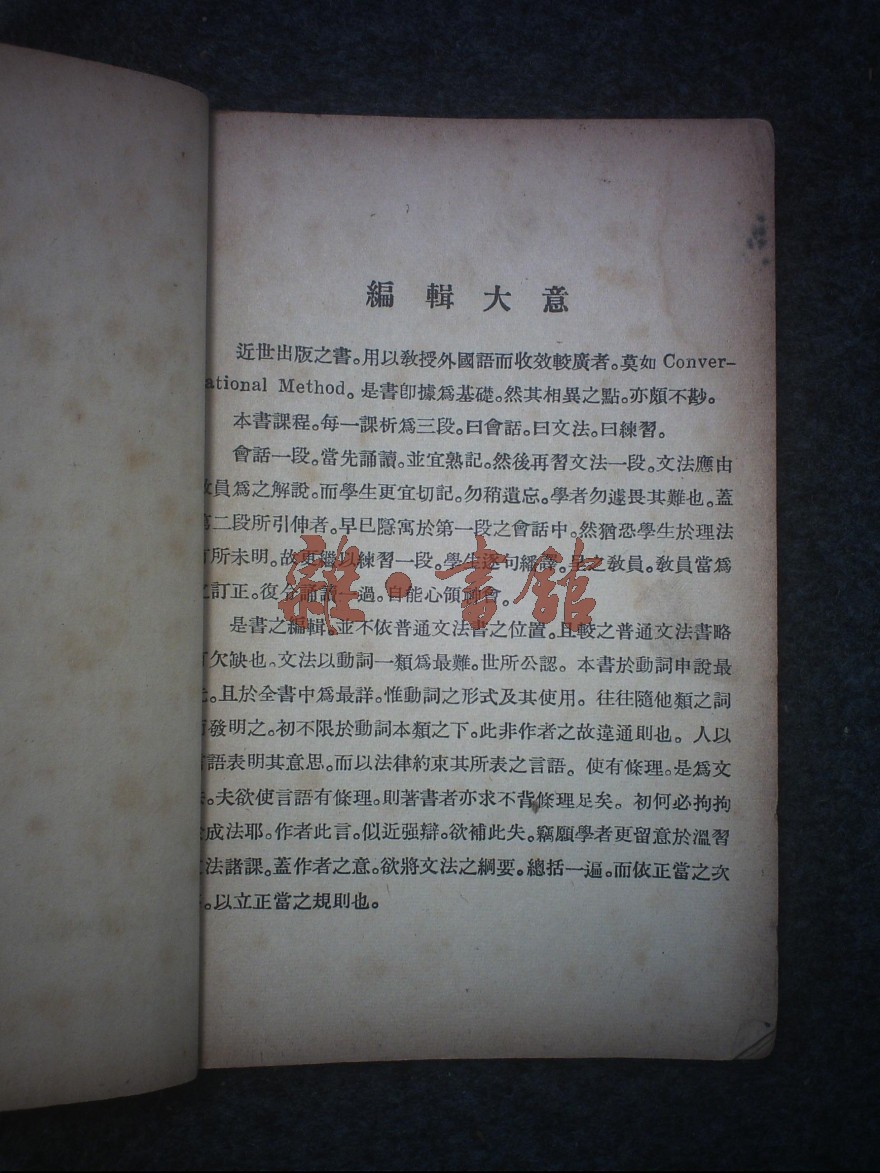 編輯大意
近世出版之書。用以敎授外國語而收效較廣者。莫如 Conver-
ational Method。是書卽據爲基礎。然其相異之點。亦頗不尠。
本書課程。每一課析爲三段。曰會話。曰文法。曰練習。
會話一段。當先誦讀。並宜熟記。然後再習文法一段。文法應由
敎員爲之解說。而學生更宜切記。勿稍遺忘。學者勿遽畏其難也。蓋
第二段所引伸者。早已隱寓於第一段之會話中。然猶恐學生於理法
有所未明。故更繼以練習一段。學生逐句繙譯。呈之敎員。敎員當爲
之訂正。復令誦讀一過。自能心領神會。
是書之編輯。並不依普通文法書之位置。且較之普通文法書略
有欠缺也。文法以動詞一類爲最難。世所公認。本書於動詞申說最
。且於全書中爲最詳。惟動詞之形式及其使用。往往隨他類之詞
而發明之。初不限於動詞本類之下。此非作者之故違通則也。人以
言語表明其意思。而以法律約束其所表之言語。使有條理。是爲文
法。夫欲使言語有條理。則著書者亦求不背條理足矣。初何必拘拘
於成法耶。作者此言。似近强辯。欲補此失。竊願學者更留意於溫習
文法諸課。蓋作者之意。欲將文法之綱要。總括一遍。而依正當之次
。以立正當之規則也。
雜·書館